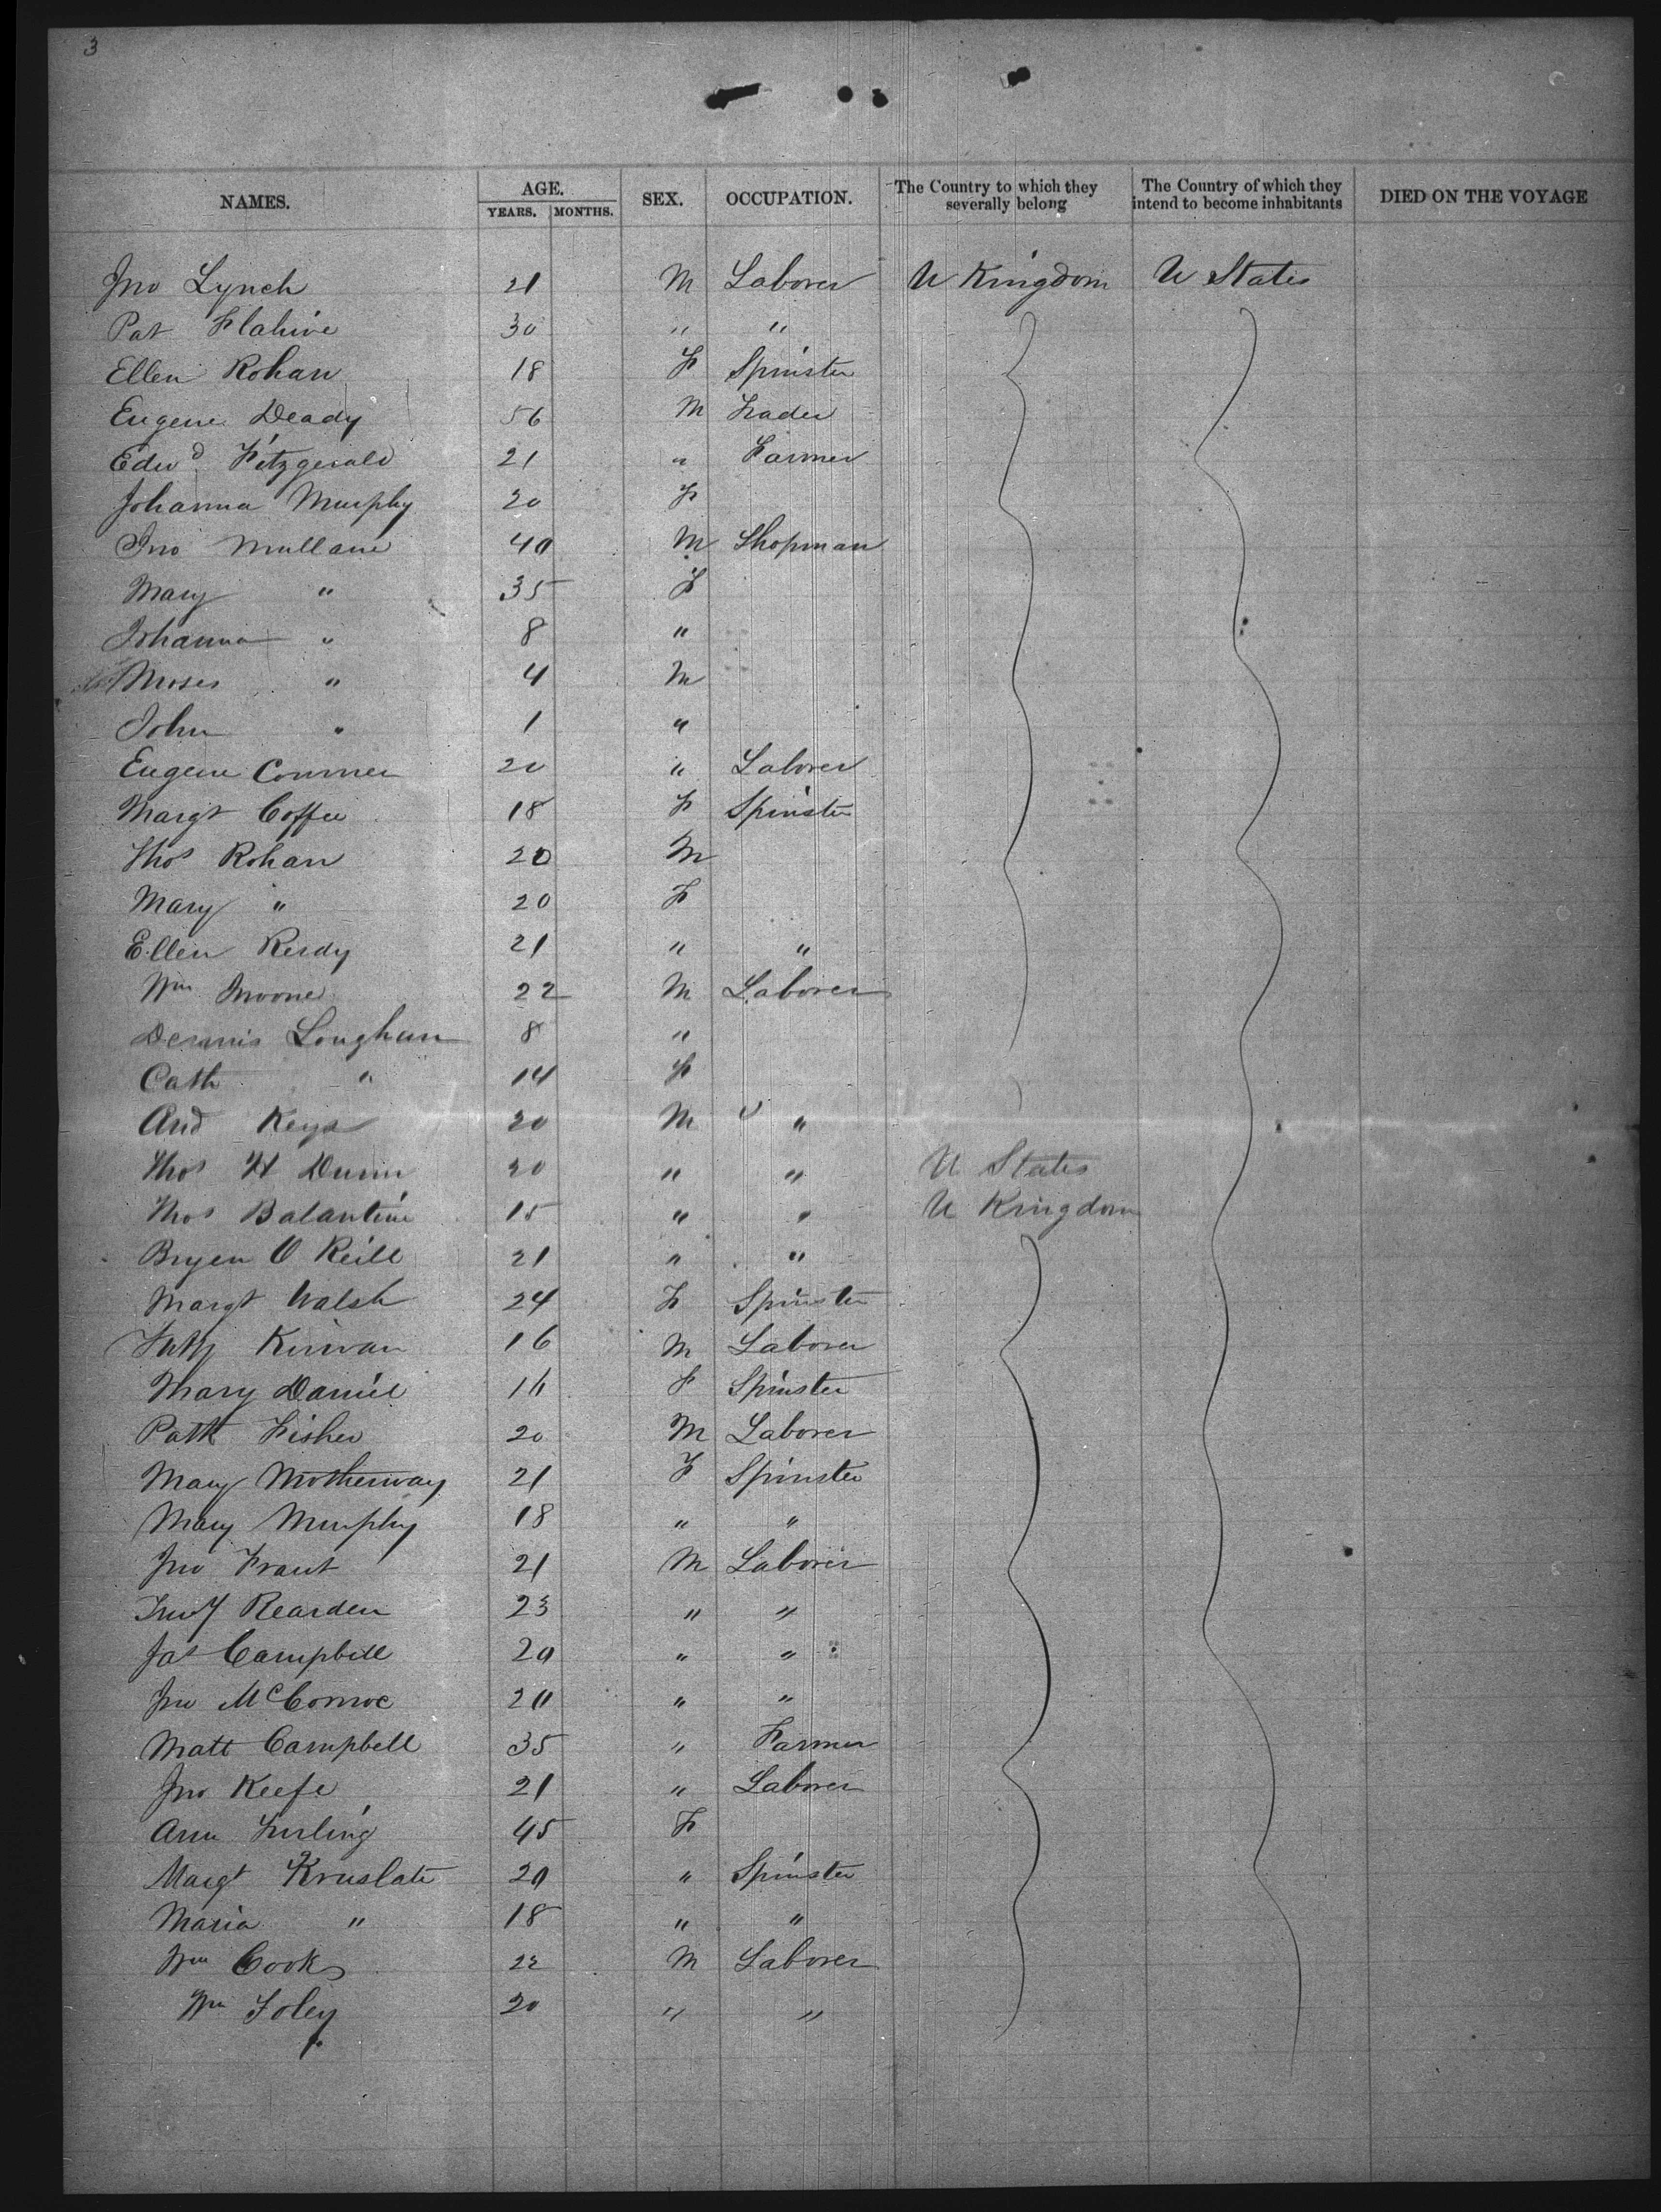 3
NAMES. AGE. YEARS. MONTHS. SEX. OCCUPATION. The Country to which they severally belong The Country of which they intend to become inhabitants DIED ON THE VOYAGE
Jno Lynch 21 M Laborer U Kingdom U States
Pat Flahive 30 " "
Ellen Rohan 18 F Spinster
Eugene Deady 56 M Trader
Edwd Fitzgerald 21 " Farmer
Johanna Murphy 20 F
Jno Mullane 40 M Shopman
Mary " 35 F
Johanna " 8 "
Moses " 4 M
John " 1 "
Eugene Connner 20 " Laborer
Margt Coffee 18 F Spinster
Thos Rohan 20 M
Mary " 20 F
Ellen Reidy 21 " "
Wm Moone 22 M Laborer
Dennis Loughan 8 "
Cath " 14 F
And Keys 20 M "
Thos H Dunn 20 " " U States
Thos Balantine 15 " " U Kingdom
Bryen O Reill 21 " "
Margt Walsh 24 F Spinster
Kirwan 16 M Laborer
Mary Daniel 16 F Spinster
Patk Fisher 20 M Laborer
Mary Motherway 21 F Spinster
Mary Murphy 18 " "
Jno Frant 21 M Laborer
Rearden 23 " "
Jas Campbell 20 " "
Jno McComoc 20 " "
Matt Campbell 35 " Farmer
Jno Keefe 21 " Laborer
Ann Furling 45 F
Margt 20 " Spinster
Maria " 18 " "
Wm Cook 22 M Laborer
Wm Foley 20 " "